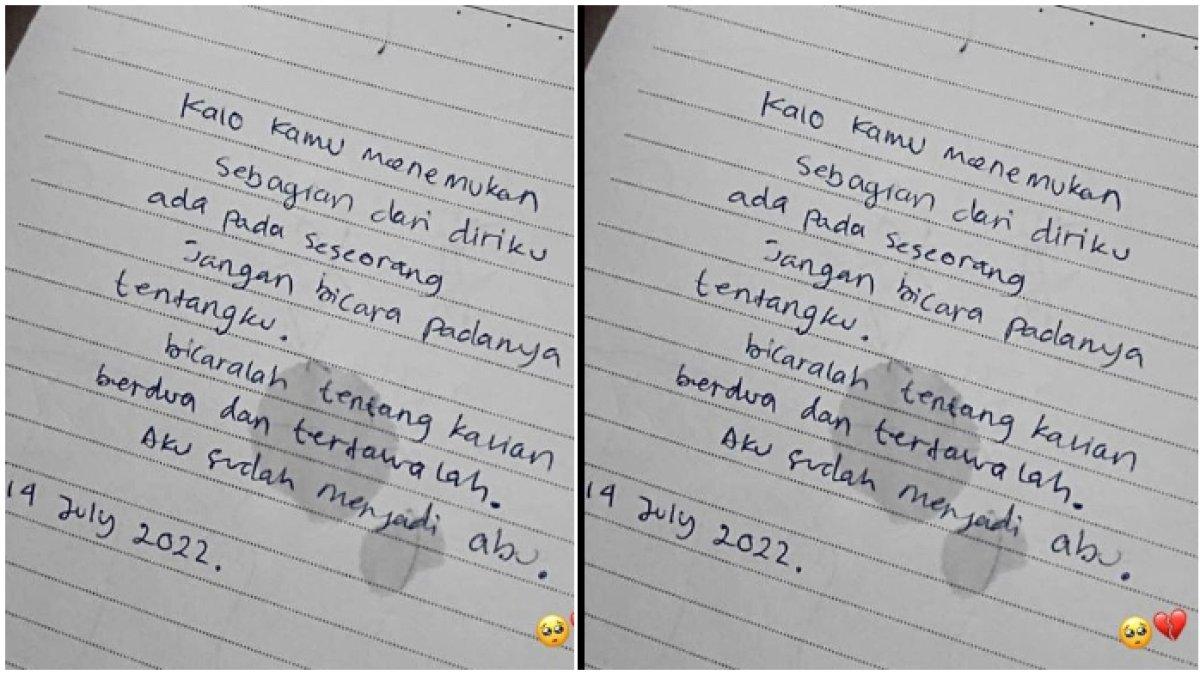 Kalo kamu menemukan
sebagian dari diriku
ada pada seseorang
Jangan bicara padanya
tentangku.
bicaralah tentang kalian
berdua dan tertawalah.
Aku sudah menjadi abu.
14 July 2022.
Kalo kamu menemukan
sebagian dari diriku
ada pada seseorang
Jangan bicara padanya
tentangku.
bicaralah tentang kalian
berdua dan tertawalah.
Aku sudah menjadi abu.
14 July 2022.